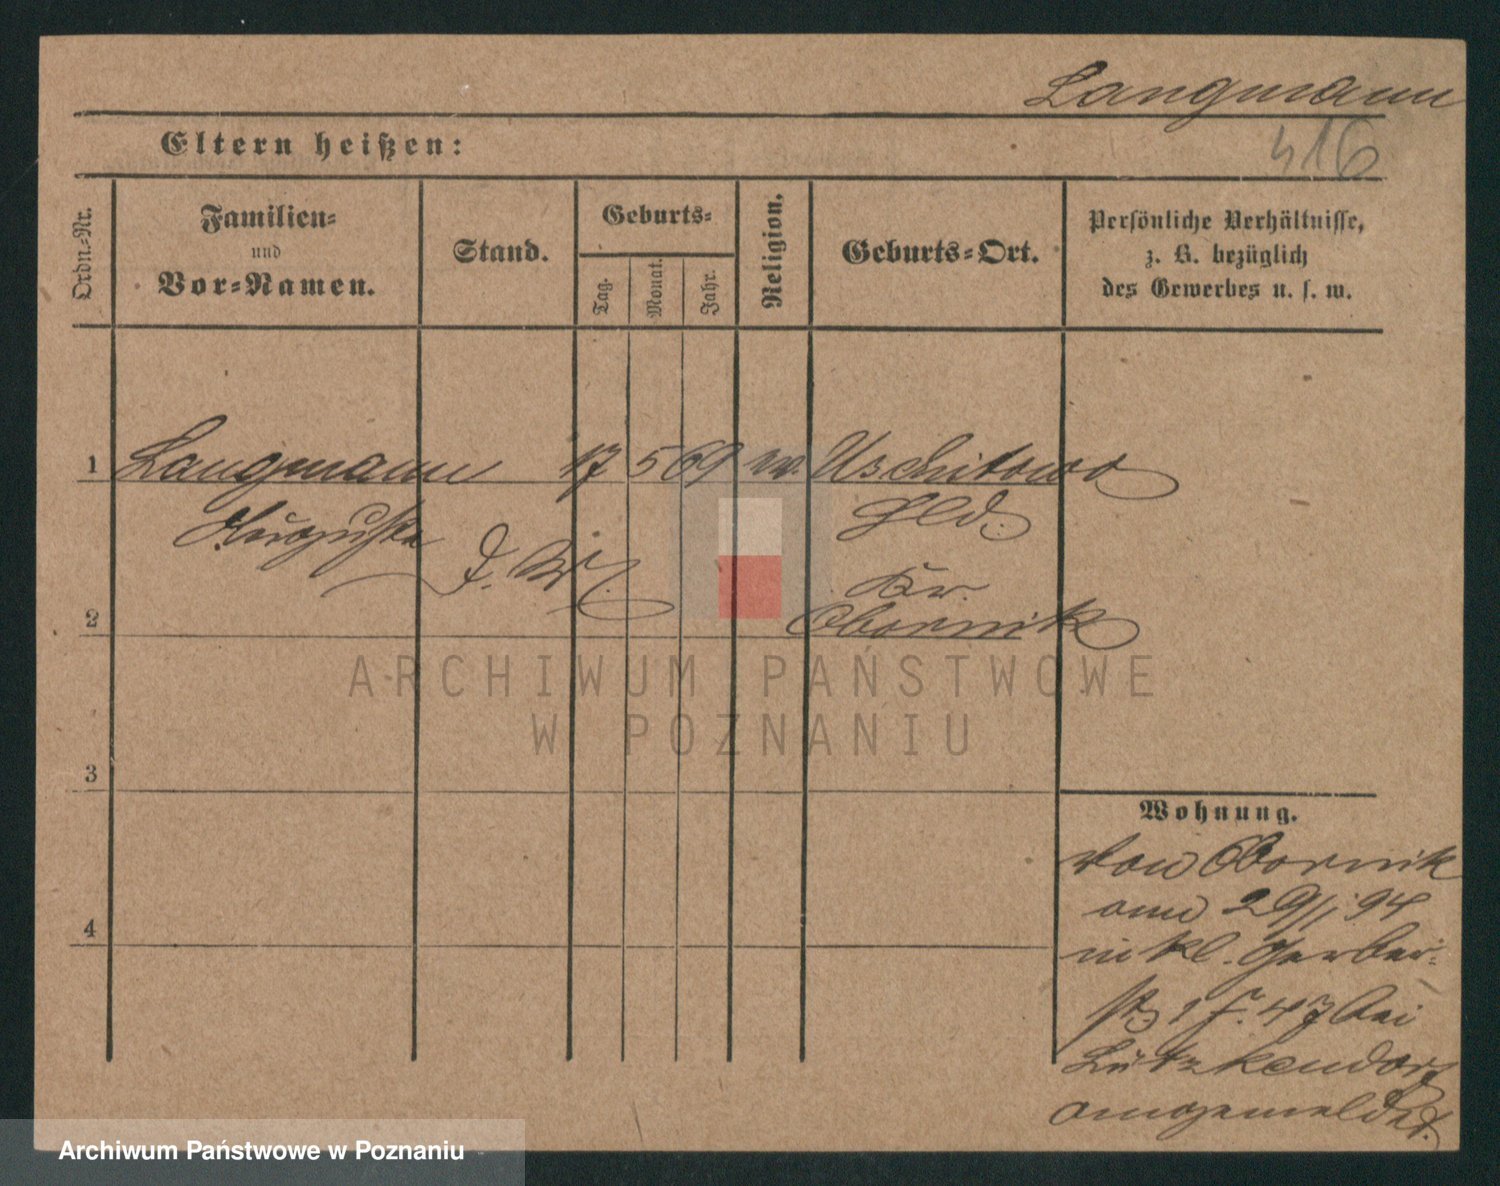 Langmann
Eltern heißen:
416
Ordn.-Nr.
Familien-
und
Vor-Namen.
Stand.
Geburts-
Tag.
Monat.
Jahr.
Religion.
Geburts-Ort.
Persönliche Verhältnisse,
z. B. bezüglich
des Gewerbes u. s. w.
1 Langmann 17 5 69 Uschitowo
Auguste Hld.
Kr.
2 Obornik
ARCHIWUM PAŃSTWOWE
W POZNANIU
3
Wohnung.
von Obornik
4 29/1 94
kl. Gerber-
str 1 f. 47 bei
Lützkendorf
angemeldet.
Archiwum Państwowe w Poznaniu